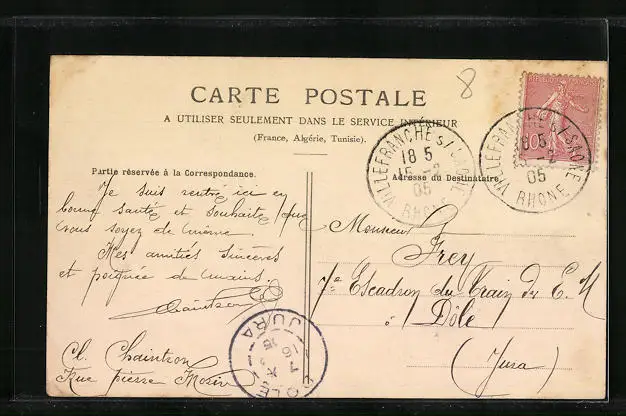 8
CARTE POSTALE
A UTILISER SEULEMENT DANS LE SERVICE INTÉRIEUR
(France, Algérie, Tunisie).
Partie réservée à la Correspondance.
Adresse du Destinataire.
VILLEFRANCHE S/ SAONE
18 5
15 -2
05
RHONE
VILLEFRANCHE S/ SAONE
05
RHONE
10
Je suis rentré ici en
bonne santé et souhaite que
vous soyez de même.
Mes amitiés sincères
et poignée de mains.
Chaintron
Cl. Chaintron
Rue pierre Morin
Monsieur
Frey
7e Escadron du Train des E. M
à Dôle
(Jura)
JURA